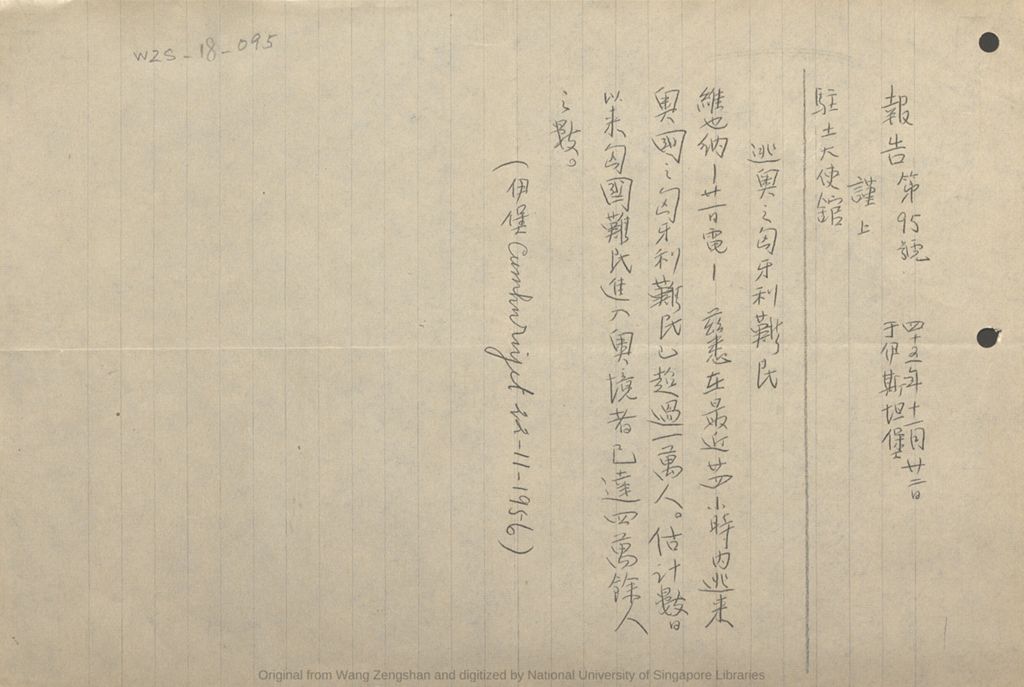 WZS-18-095
報告第95號
四十五年十一月廿二日
于伊斯坦堡
謹上
駐土大使館
逃奧之匈牙利難民
維也納—廿一日電— 茲悉在最近廿四小時內逃來
奧國之匈牙利難民已超過一萬人。估計數日
以來匈國難民進入奧境者已達四萬餘人
之數。
(伊堡 Cumhuriyet 22-11-1956)
Original from Wang Zengshan and digitized by National University of Singapore Libraries